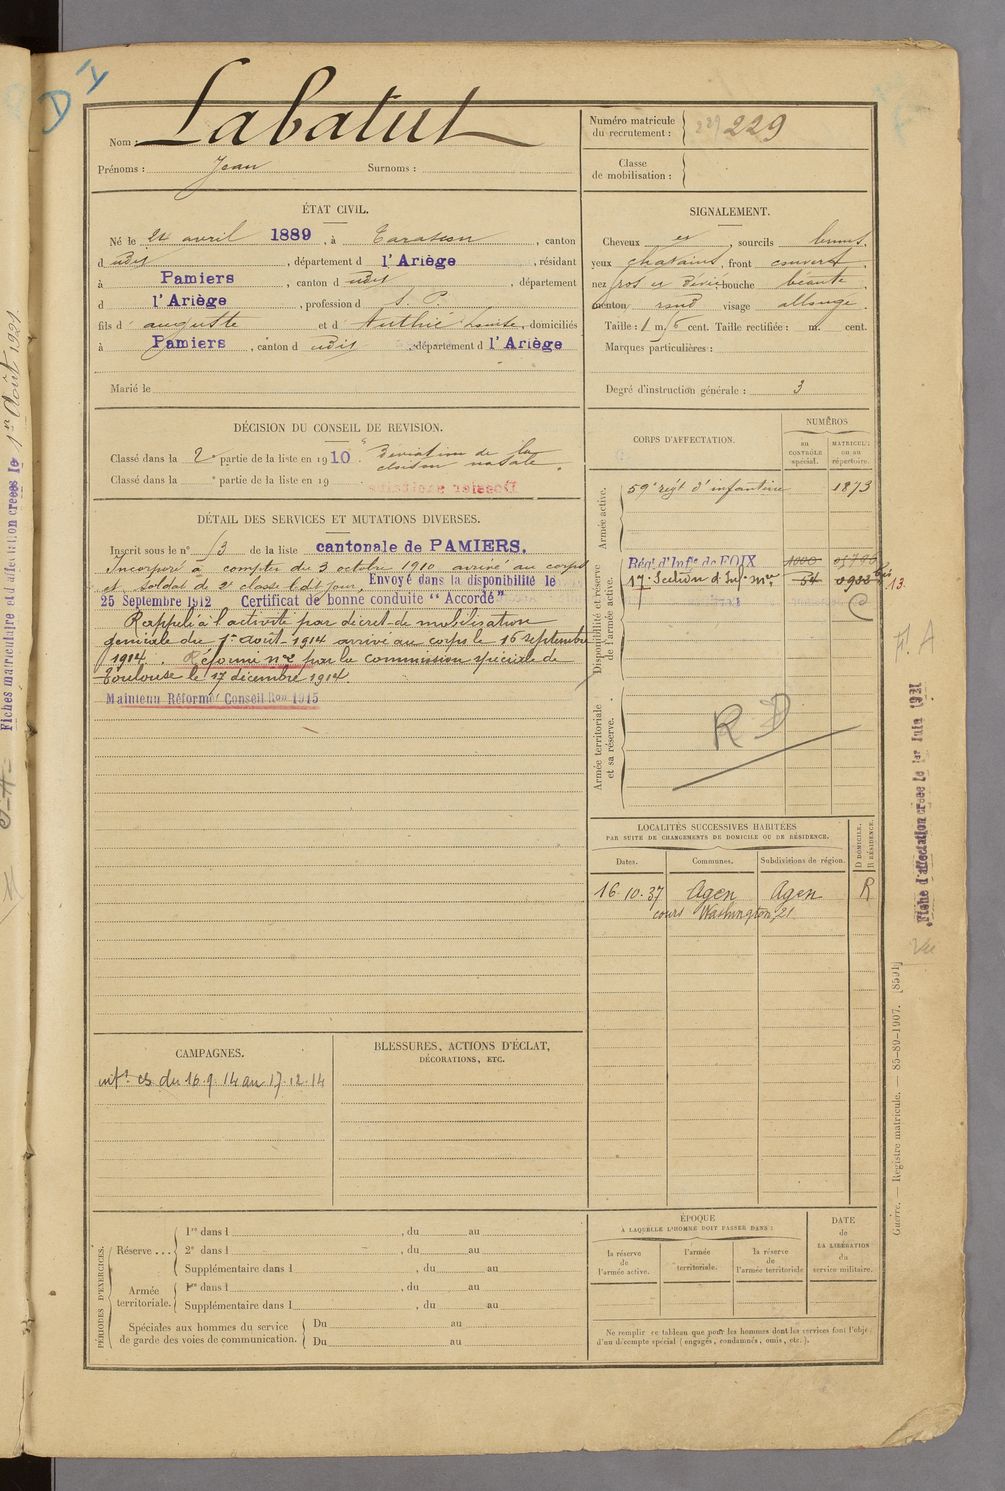 D I
Nom : Labatut
Prénoms : Jean Surnoms :
Numéro matricule
du recrutement : 229 229
Classe
de mobilisation :
ÉTAT CIVIL.
Né le 24 avril 1889, à Tarascon, canton
dudit, département d l'Ariège, résidant
à Pamiers, canton dudit, département
d l'Ariège, profession d S. P.
fils d' auguste et d' Authié Louise, domiciliés
à Pamiers, canton dudit, département d l'Ariège
Marié le
SIGNALEMENT.
Cheveux et, sourcils bruns,
yeux chatains, front couvert,
nez gros et dévié bouche béante,
menton rond visage allongé.
Taille : 1 m. 6 cent. Taille rectifiée : m. cent.
Marques particulières :
Degré d'instruction générale : 3
DÉCISION DU CONSEIL DE REVISION.
Classé dans la 2e partie de la liste en 1910. Déviation de la
cloison nasale.
Classé dans la e partie de la liste en 19
Dossier sanitaire
CORPS D'AFFECTATION.
NUMÉROS
au
CONTRÔLE
spécial.
MATRICULE
ou au
répertoire.
Armée active.
59e régt d'infanterie 1873
Disponibilité et réserve
de l'armée active.
Régt d'Infie de FOIX 1000
17e Section d'Inf. mres 54 0933 bis
13.
C
Armée territoriale
et sa réserve.
R D
DÉTAIL DES SERVICES ET MUTATIONS DIVERSES.
Inscrit sous le n° 13 de la liste cantonale de PAMIERS.
Incorporé à compter du 3 octobre 1910 arrivé au corps
et soldat de 2e classe ledit jour, Envoyé dans la disponibilité le
25 Septembre 1912 Certificat de bonne conduite "Accordé"
Rappelé à l'activité par décret de mobilisation
générale du 1er août 1914 arrivé au corps le 16 septembre
1914. Réformé n° 2 par la commission spéciale de
Toulouse le 17 décembre 1914.
Maintenu Réformé Conseil Ron 1915
LOCALITÉS SUCCESSIVES HABITÉES
PAR SUITE DE CHANGEMENTS DE DOMICILE OU DE RÉSIDENCE.
Dates. Communes. Subdivisions de région. D DOMICILE. R RÉSIDENCE.
16.10.37 Agen Agen R
cours Washington, 21
CAMPAGNES.
intr cs du 16.9.14 au 17.12.14
BLESSURES, ACTIONS D'ÉCLAT,
DÉCORATIONS, ETC.
PÉRIODES D'EXERCICES.
Réserve ...
1re dans l , du au
2e dans l , du au
Supplémentaire dans l , du au
Armée
territoriale.
1re dans l , du au
Supplémentaire dans l , du au
Spéciales aux hommes du service
de garde des voies de communication.
Du au
Du au
ÉPOQUE
À LAQUELLE L'HOMME DOIT PASSER DANS :
la réserve
de
l'armée active.
l'armée
territoriale.
la réserve
de
l'armée territoriale
DATE
de
LA LIBÉRATION
du
service militaire.
Ne remplir ce tableau que pour les hommes dont les services font l'objet
d'un décompte spécial (engagés, condamnés, omis, etc.).
Fiches matriculaire et d'affectation créées le 1er Août 1921.
F. A
Fiche d'affectation créée le 1er Juin 1921
Vu
Guerre. — Registre matricule. — 85-89-1907. [8591]